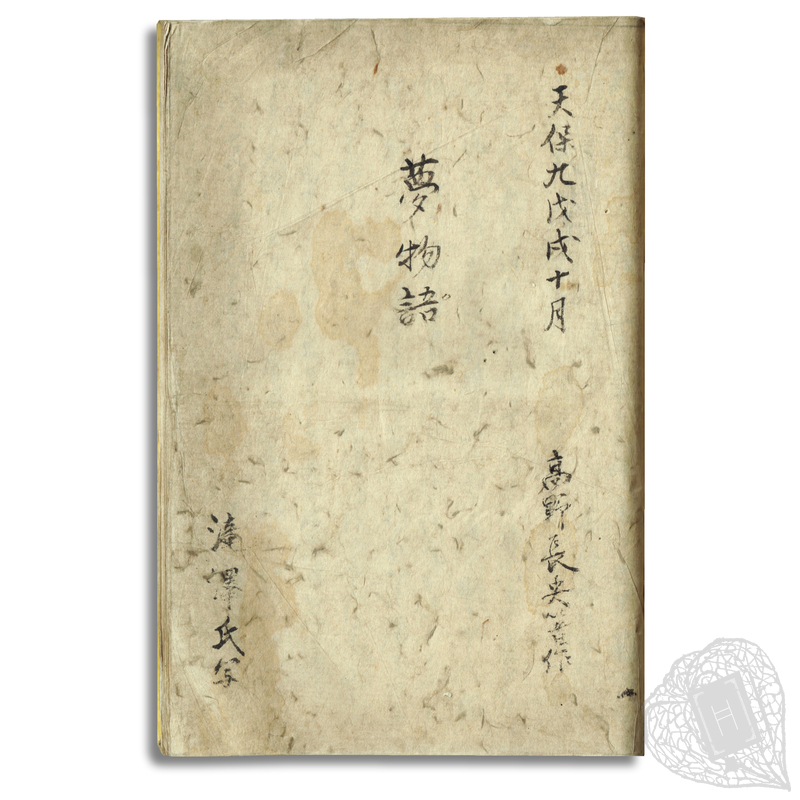 天保九戊戌十月
高野長英著作
夢物語
滝澤氏写
H